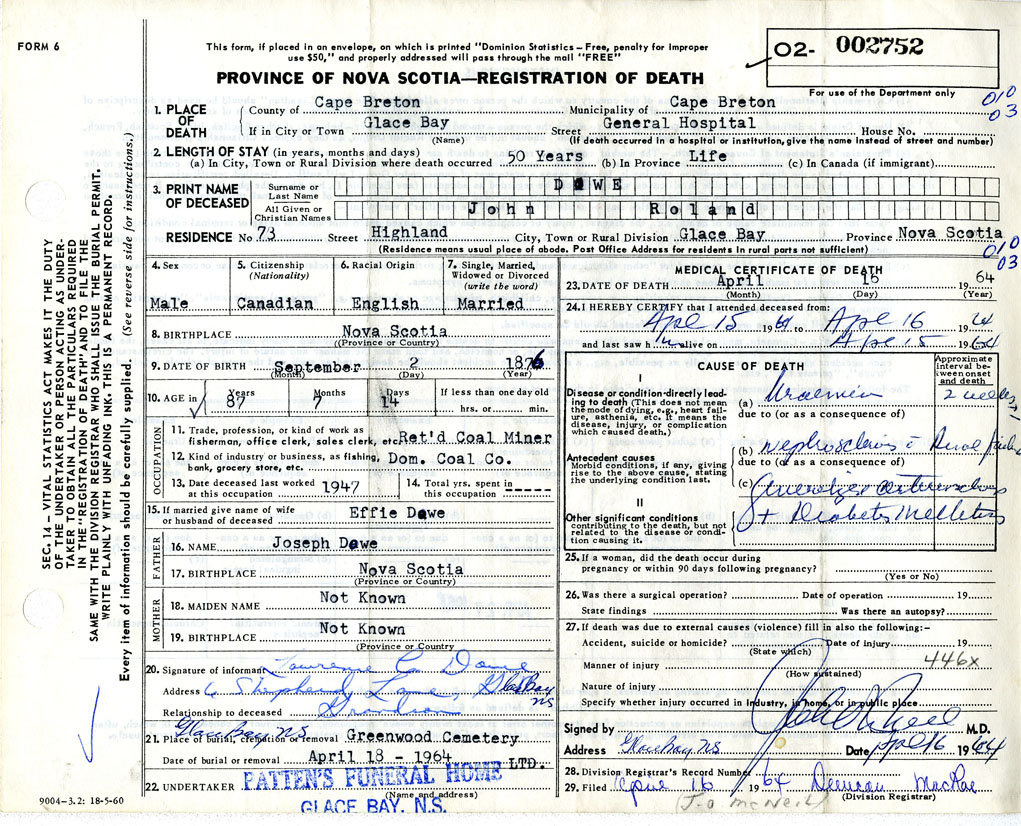 FORM 6
This form, if placed in an envelope, on which is printed "Dominion Statistics – Free, penalty for improper
use $50," and properly addressed will pass through the mail "FREE"
PROVINCE OF NOVA SCOTIA—REGISTRATION OF DEATH
02- 002752
For use of the Department only
010
03
1. PLACE OF DEATH
County of Cape Breton Municipality of Cape Breton
If in City or Town Glace Bay Street General Hospital House No.
(Name) (If death occurred in a hospital or institution, give the name instead of street and number)
2. LENGTH OF STAY (in years, months and days)
(a) In City, Town or Rural Division where death occurred 50 Years (b) In Province Life (c) In Canada (if immigrant)
3. PRINT NAME OF DECEASED
Surname or Last Name DOWE
All Given or Christian Names John Roland
RESIDENCE No 73 Street Highland City, Town or Rural Division Glace Bay Province Nova Scotia
(Residence means usual place of abode. Post Office Address for residents in rural parts not sufficient)
010
03
4. Sex Male
5. Citizenship (Nationality) Canadian
6. Racial Origin English
7. Single, Married, Widowed or Divorced (write the word) Married
8. BIRTHPLACE Nova Scotia
(Province or Country)
9. DATE OF BIRTH September 2 1876
(Month) (Day) (Year)
10. AGE in Years 87 Months 7 Days 14 If less than one day old
hrs. or min.
OCCUPATION
11. Trade, profession, or kind of work as
fisherman, office clerk, sales clerk, etc Ret'd Coal Miner
12. Kind of industry or business, as fishing,
bank, grocery store, etc. Dom. Coal Co.
13. Date deceased last worked
at this occupation 1947
14. Total yrs. spent in
this occupation -----
15. If married give name of wife
or husband of deceased Effie Dowe
FATHER
16. NAME Joseph Dowe
17. BIRTHPLACE Nova Scotia
(Province or Country)
MOTHER
18. MAIDEN NAME Not Known
19. BIRTHPLACE Not Known
(Province or Country
20. Signature of informant Lawrence Dowe
Address 6 Shepherd Lane, Glace Bay NS
Relationship to deceased Grandson
Glace Bay, NS
21. Place of burial, cremation or removal Greenwood Cemetery
Date of burial or removal April 18 - 1964
22. UNDERTAKER PATTEN'S FUNERAL HOME LTD.
(Name and address)
GLACE BAY, N.S.
9004-3.2: 18-5-60
MEDICAL CERTIFICATE OF DEATH
23. DATE OF DEATH April 16 1964
(Month) (Day) (Year)
24. I HEREBY CERTIFY that I attended deceased from:
Apl 15 1964 to Apl 16 1964
and last saw him alive on Apl 15 1964
CAUSE OF DEATH
Approximate interval between onset and death
I
Disease or condition directly leading to death (This does not mean the mode of dying, e.g., heart failure, asthenia, etc. It means the disease, injury, or complication which caused death.)
(a) Uraemia 2 weeks
due to (or as a consequence of)
Antecedent causes
Morbid conditions, if any, giving rise to the above cause, stating the underlying condition last.
(b) nephrosclerosis
due to (or as a consequence of)
(c) Generalized arteriosclerosis
II
Other significant conditions
contributing to the death, but not related to the disease or condition causing it.
+ Diabetes Mellitus
25. If a woman, did the death occur during
pregnancy or within 90 days following pregnancy?
(Yes or No)
26. Was there a surgical operation? Date of operation 19
State findings Was there an autopsy?
27. If death was due to external causes (violence) fill in also the following:-
Accident, suicide or homicide? Date of injury 19
(State which)
Manner of injury 446x
(How sustained)
Nature of injury
Specify whether injury occurred in industry, in home, or in public place
Signed by M.D.
Address Glace Bay NS Date Apl 16 1964
28. Division Registrar's Record Number
29. Filed April 16 1964 Duncan MacRae
(Division Registrar)
J-o McNeil
SEC. 14 – VITAL STATISTICS ACT MAKES IT THE DUTY
OF THE UNDERTAKER OR PERSON ACTING AS UNDER-
TAKER TO OBTAIN ALL THE PARTICULARS REQUIRED
IN THE "REGISTRATION OF DEATH" AND TO FILE THE
SAME WITH THE DIVISION REGISTRAR WHO SHALL ISSUE THE BURIAL PERMIT.
WRITE PLAINLY WITH UNFADING INK. THIS IS A PERMANENT RECORD.
Every item of information should be carefully supplied. (See reverse side for instructions.)